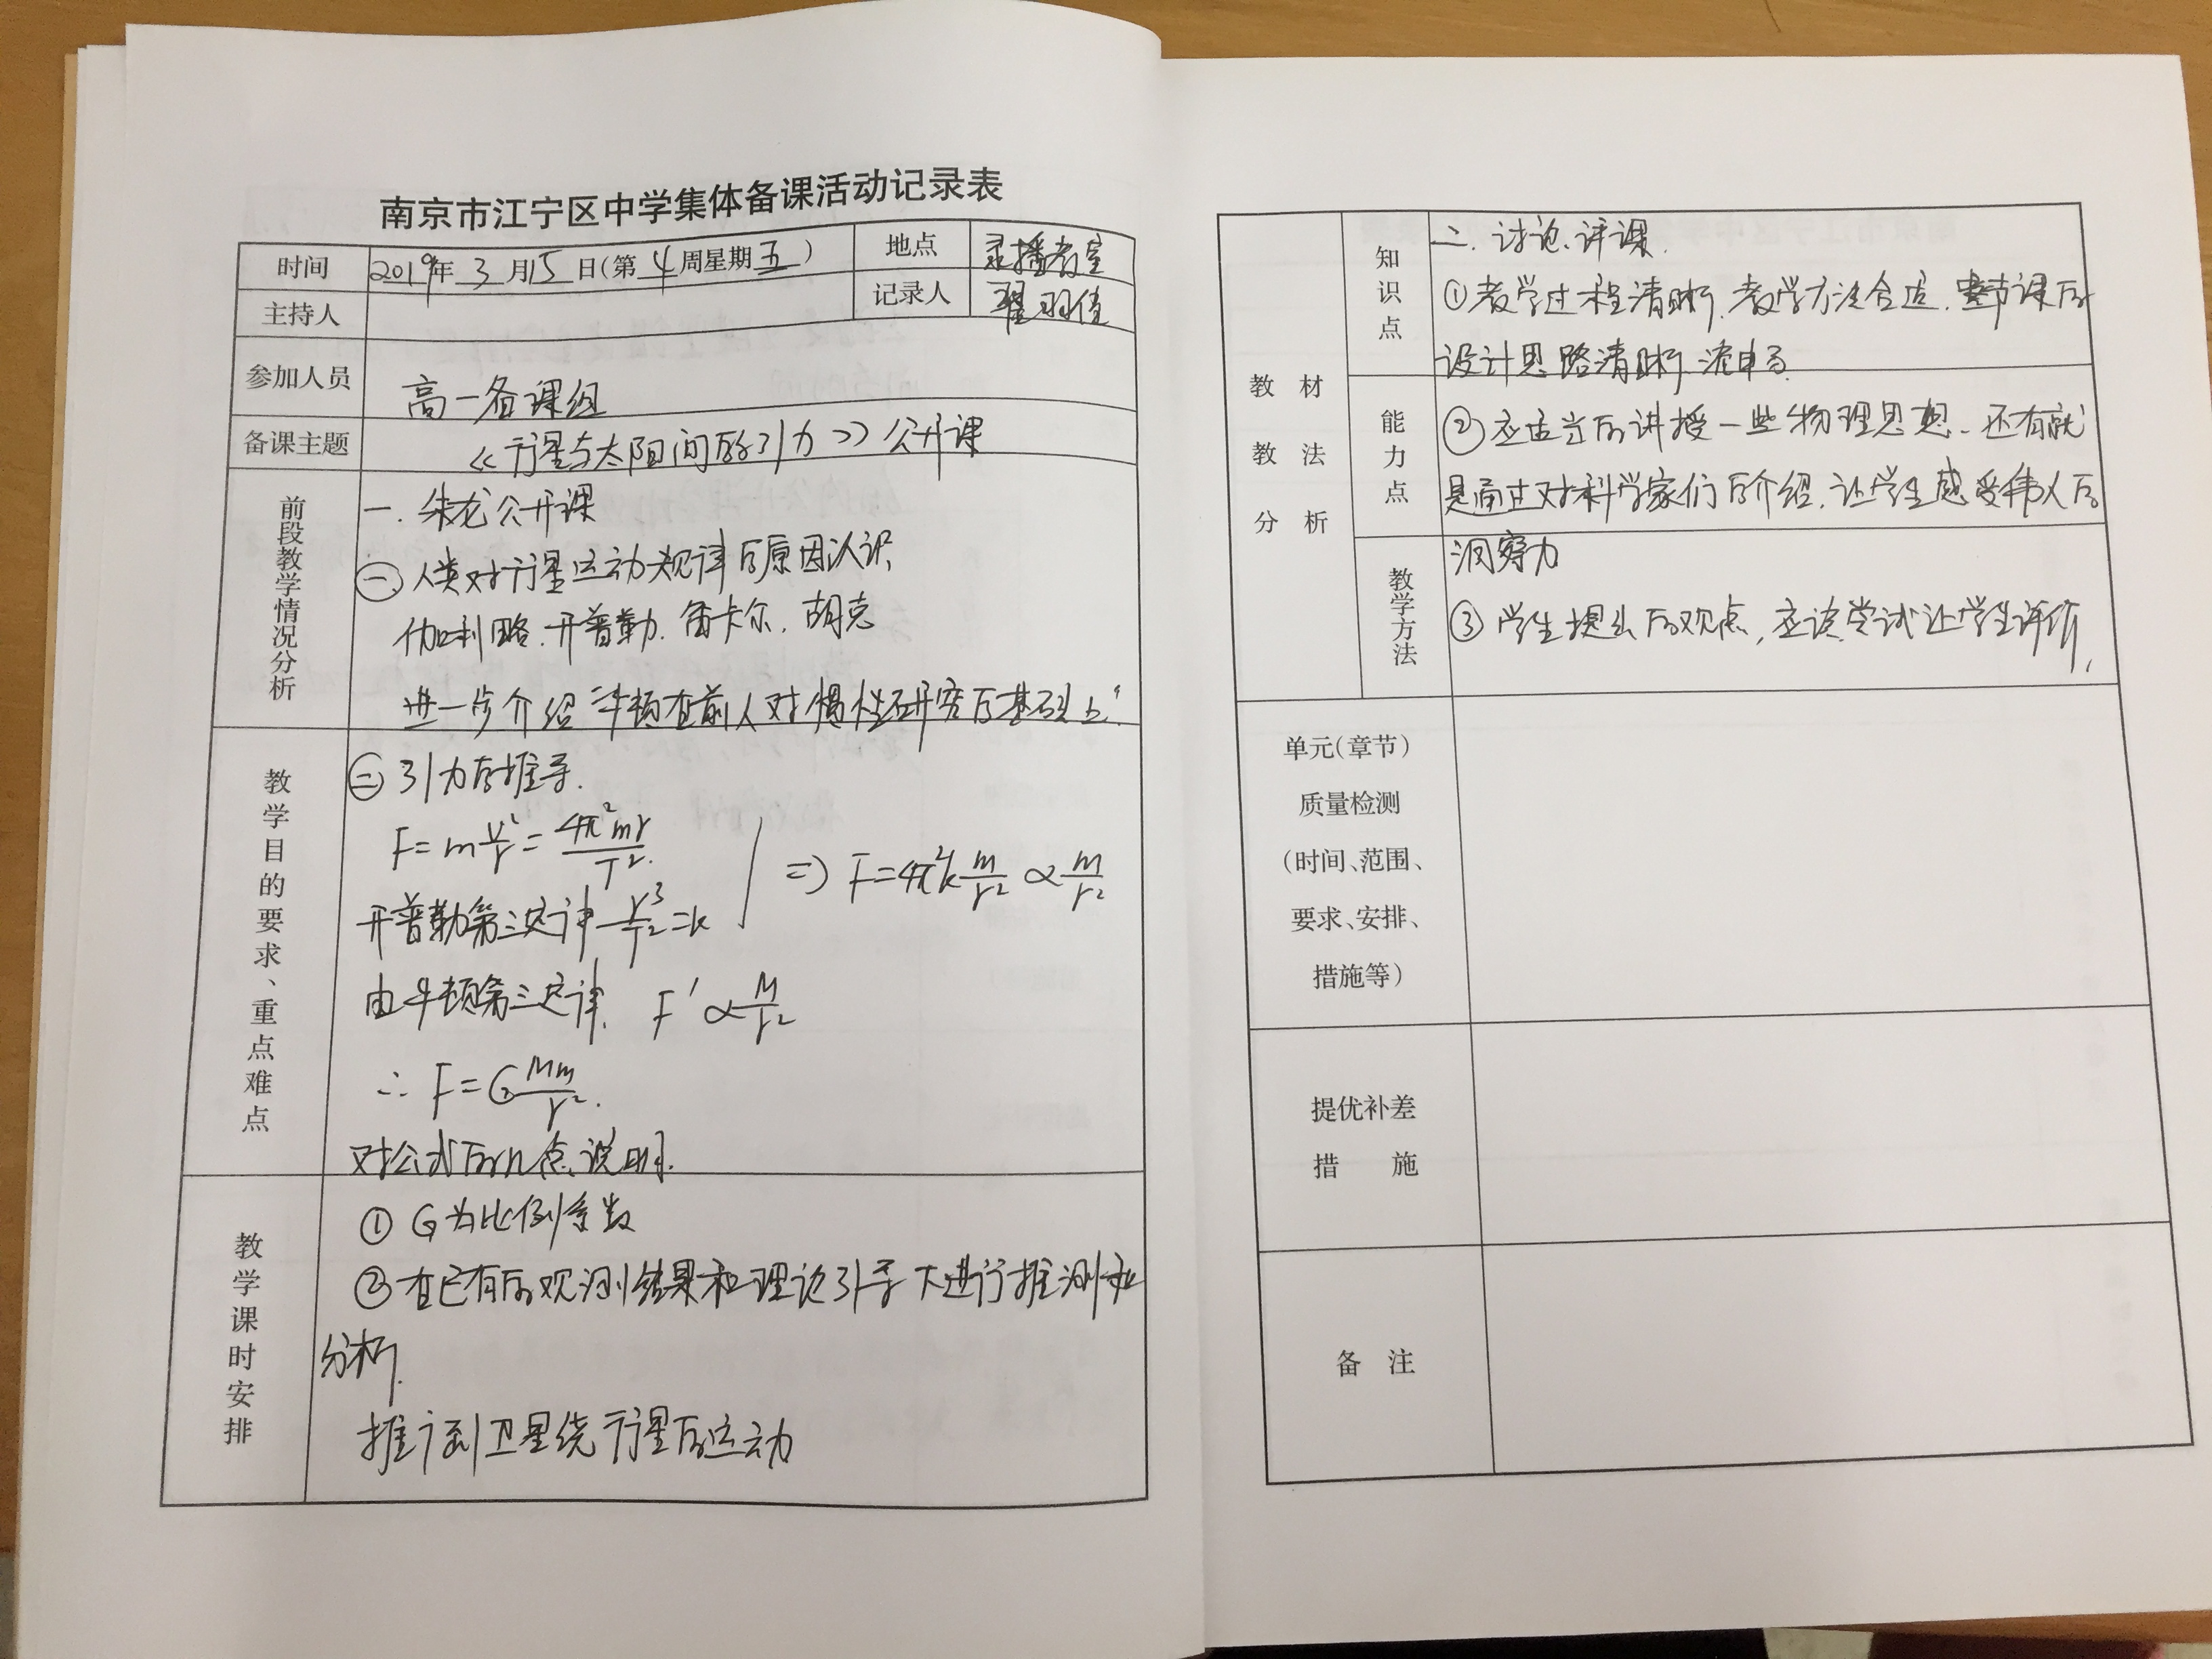 南京市江宁区中学集体备课活动记录表
时间 2019年 3 月 15 日(第 4 周星期 五 ) 地点 录播教室
主持人 记录人 翟羽佳
参加人员 高一备课组
备课主题 《行星与太阳间的引力》公开课
前段教学情况分析
一. 朱龙公开课
㊀ 人类对行星运动规律的原因认识
伽利略. 开普勒. 笛卡尔. 胡克
进一步介绍"牛顿在前人对惯性研究的基础上"
教学目的要求、重点难点
㊁ 引力的推导.
F=m v²/r = 4π²mr/T².
开普勒第三定律 r³/T²=k
⇒ F=4π²k m/r² ∝ m/r²
由牛顿第三定律. F′ ∝ M/r²
∴ F=G Mm/r².
对公式的几点说明.
教学课时安排
① G为比例系数
② 在已有的观测结果和理论引导下进行推测和
分析.
推广到卫星绕行星的运动
教材教法分析
知识点
二. 讨论、评课.
① 教学过程清晰. 教学方法合适. 整节课的
设计思路清晰
能力点
② 应适当的讲授一些物理思想. 还有就
是通过对科学家们的介绍. 让学生感受伟人的
教学方法
洞察力
③ 学生提出的观点, 应该尝试让学生评价,
单元(章节)
质量检测
(时间、范围、
要求、安排、
措施等)
提优补差
措 施
备 注